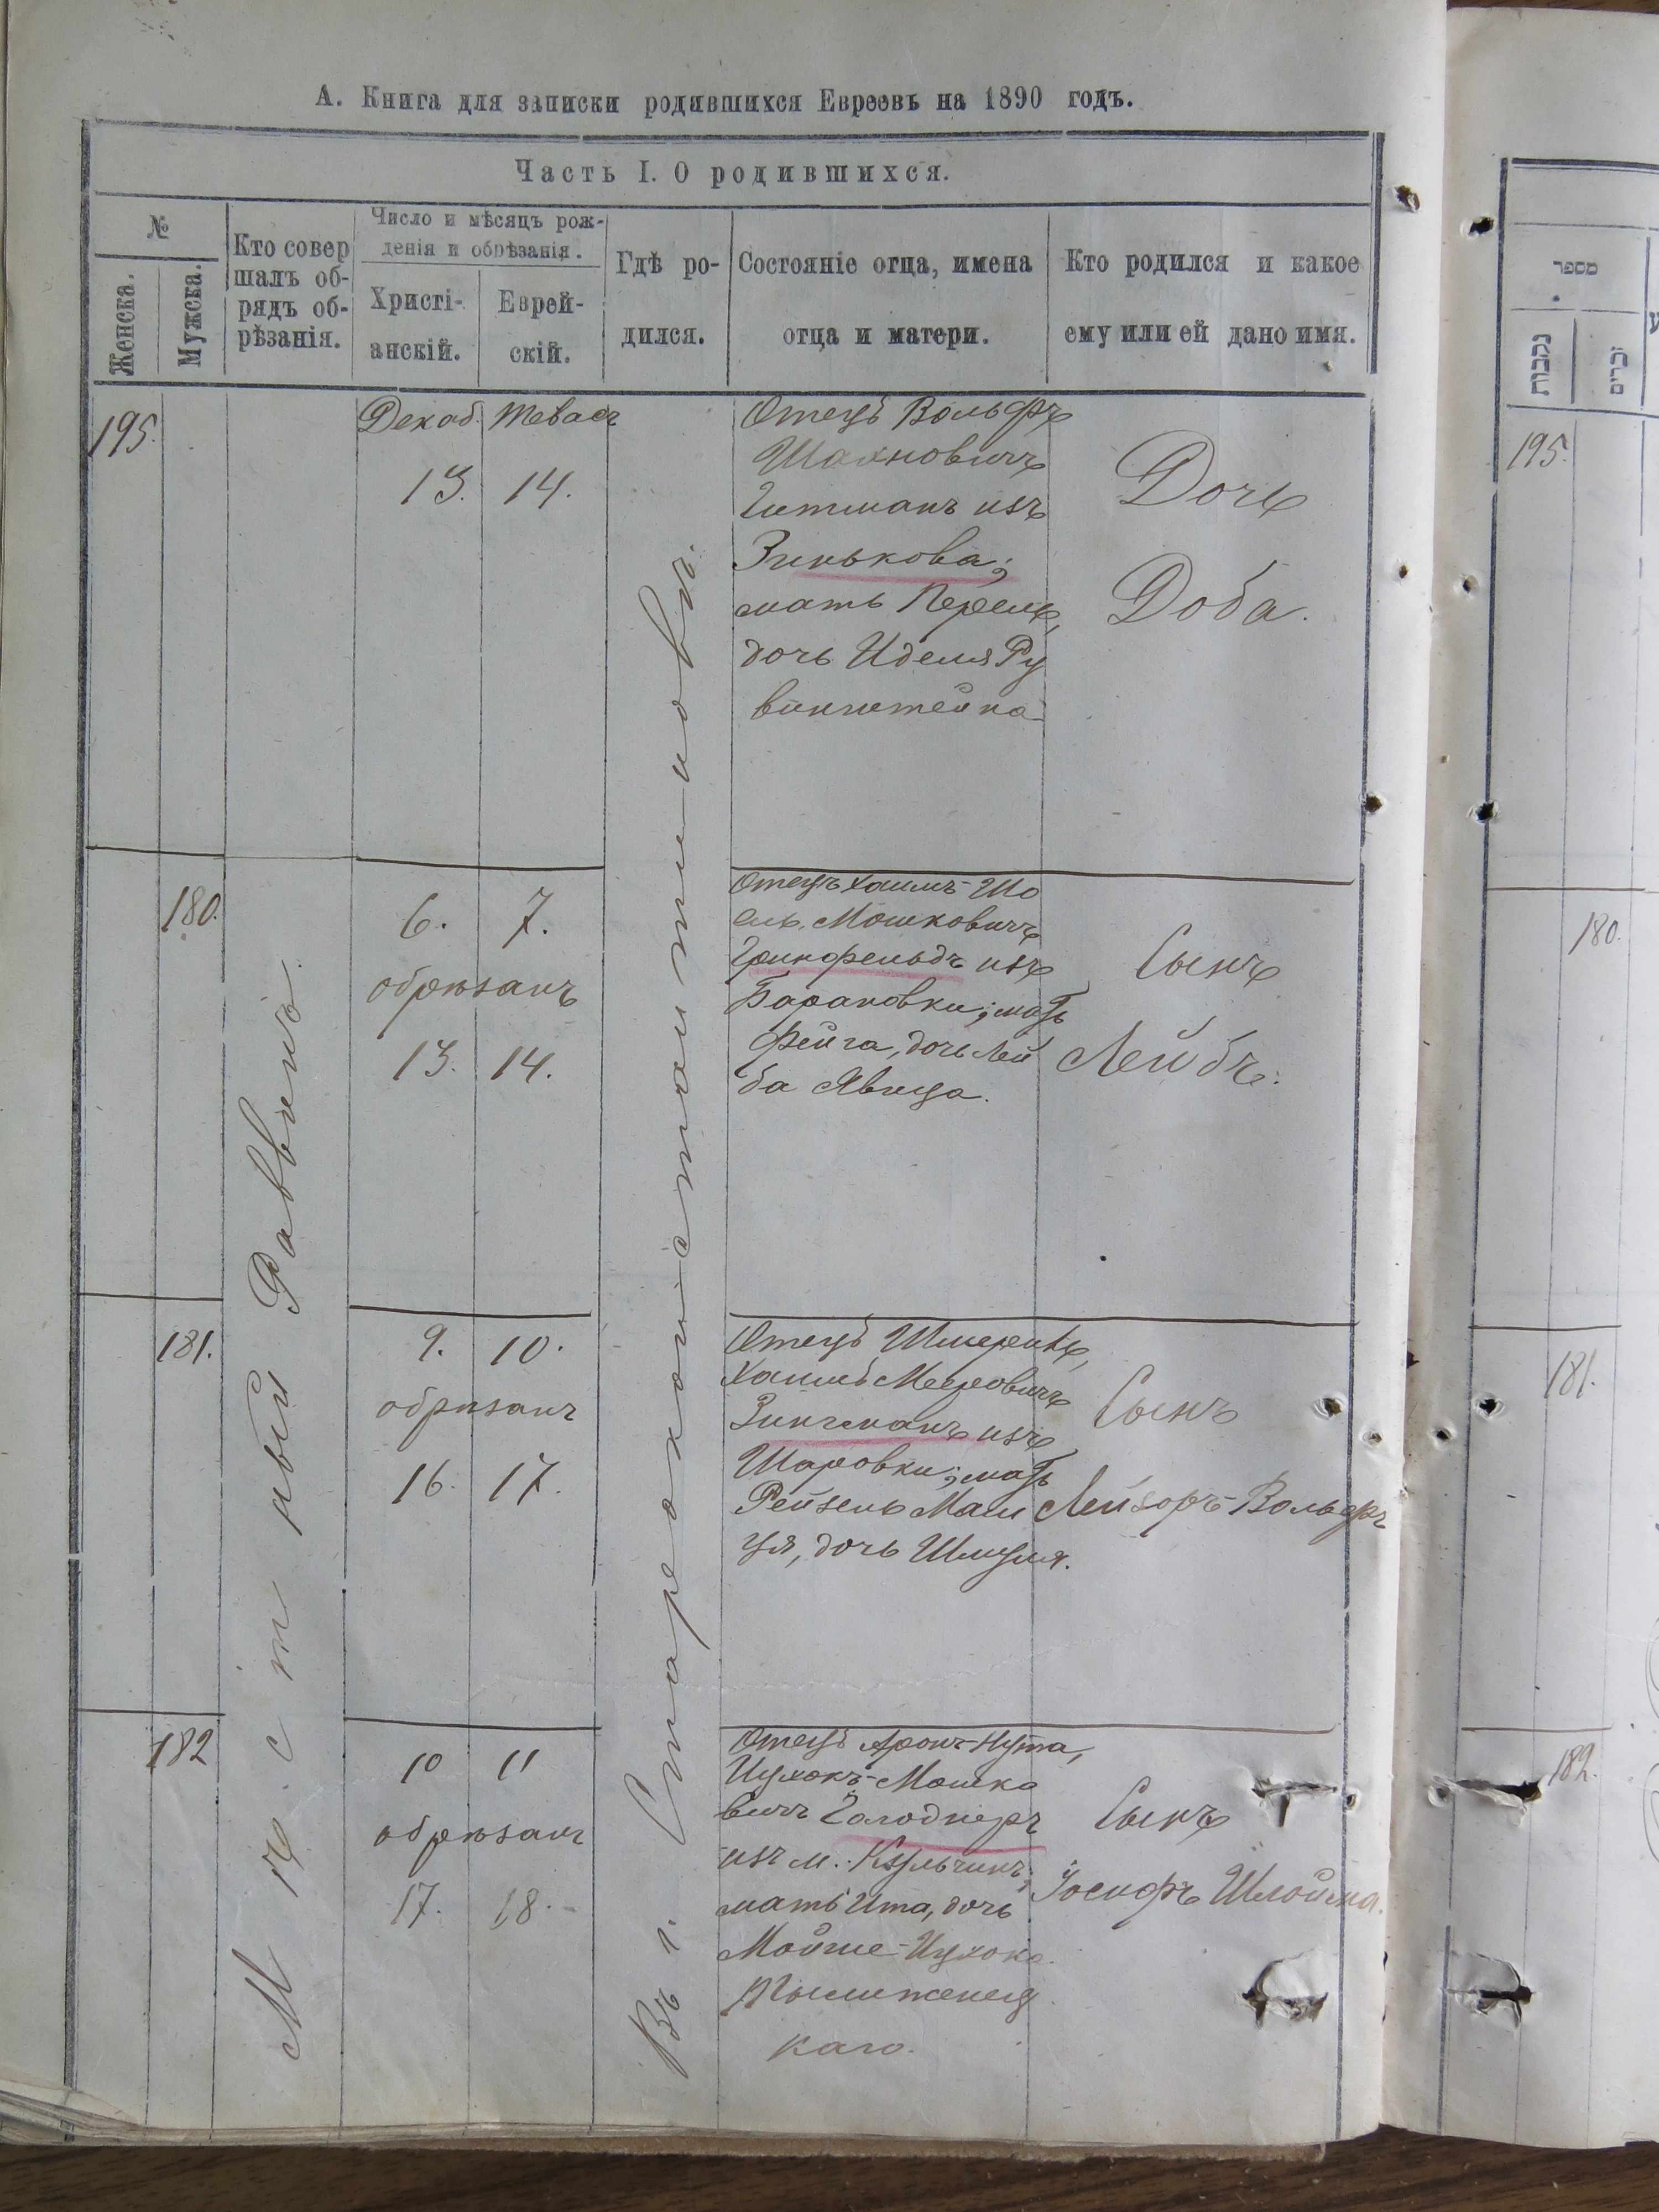 А. Книга для записки родившихся Евреевъ на 1890 годъ.
Часть I. О родившихся.
№
Женска.
Мужска.
Кто совер
шалъ об-
рядъ об-
рѣзанія.
Число и мѣсяцъ рож-
денія и обрѣзанія.
Христі-
анскій.
Еврей-
скій.
Гдѣ ро-
дился.
Состояніе отца, имена
отца и матери.
Кто родился и какое
ему или ей дано имя.
Мѣстный Раввинъ.
Въ г. Староконстантиновѣ.
195.
Декаб. Теваса
13. 14.
Отецъ Вольфъ
Шахновичъ
Гитманъ изъ
Зинькова;
мать Перель,
дочь Иделя Ру
винштейна
Дочь
Доба.
180.
6. 7.
обрѣзанъ
13. 14.
Отецъ Хаимъ-Шо
ель Мошковичъ
Гринфельдъ изъ
Барановки; мать
Фейга, дочь Лей
ба Явица.
Сынъ
Лейбъ.
181.
9. 10.
обрѣзанъ
16. 17.
Отецъ Шмерикъ,
Хаимъ Мееровичъ
Зингманъ изъ
Шаровки; мать
Рейзель Мали
ця, дочь Шмуля.
Сынъ
Лейзоръ-Вольфъ
182
10 11
обрѣзанъ
17. 18.
Отецъ Аронъ-Нута,
Ицхокъ-Мошко
вичъ Голоднеръ
изъ м. Кульчинъ;
мать Ита, дочь
Мойше-Ицхока
каго.
Сынъ
Іосифъ Шлойма.
מספר
נקבות
זכרים
195.
180.
181.
182.